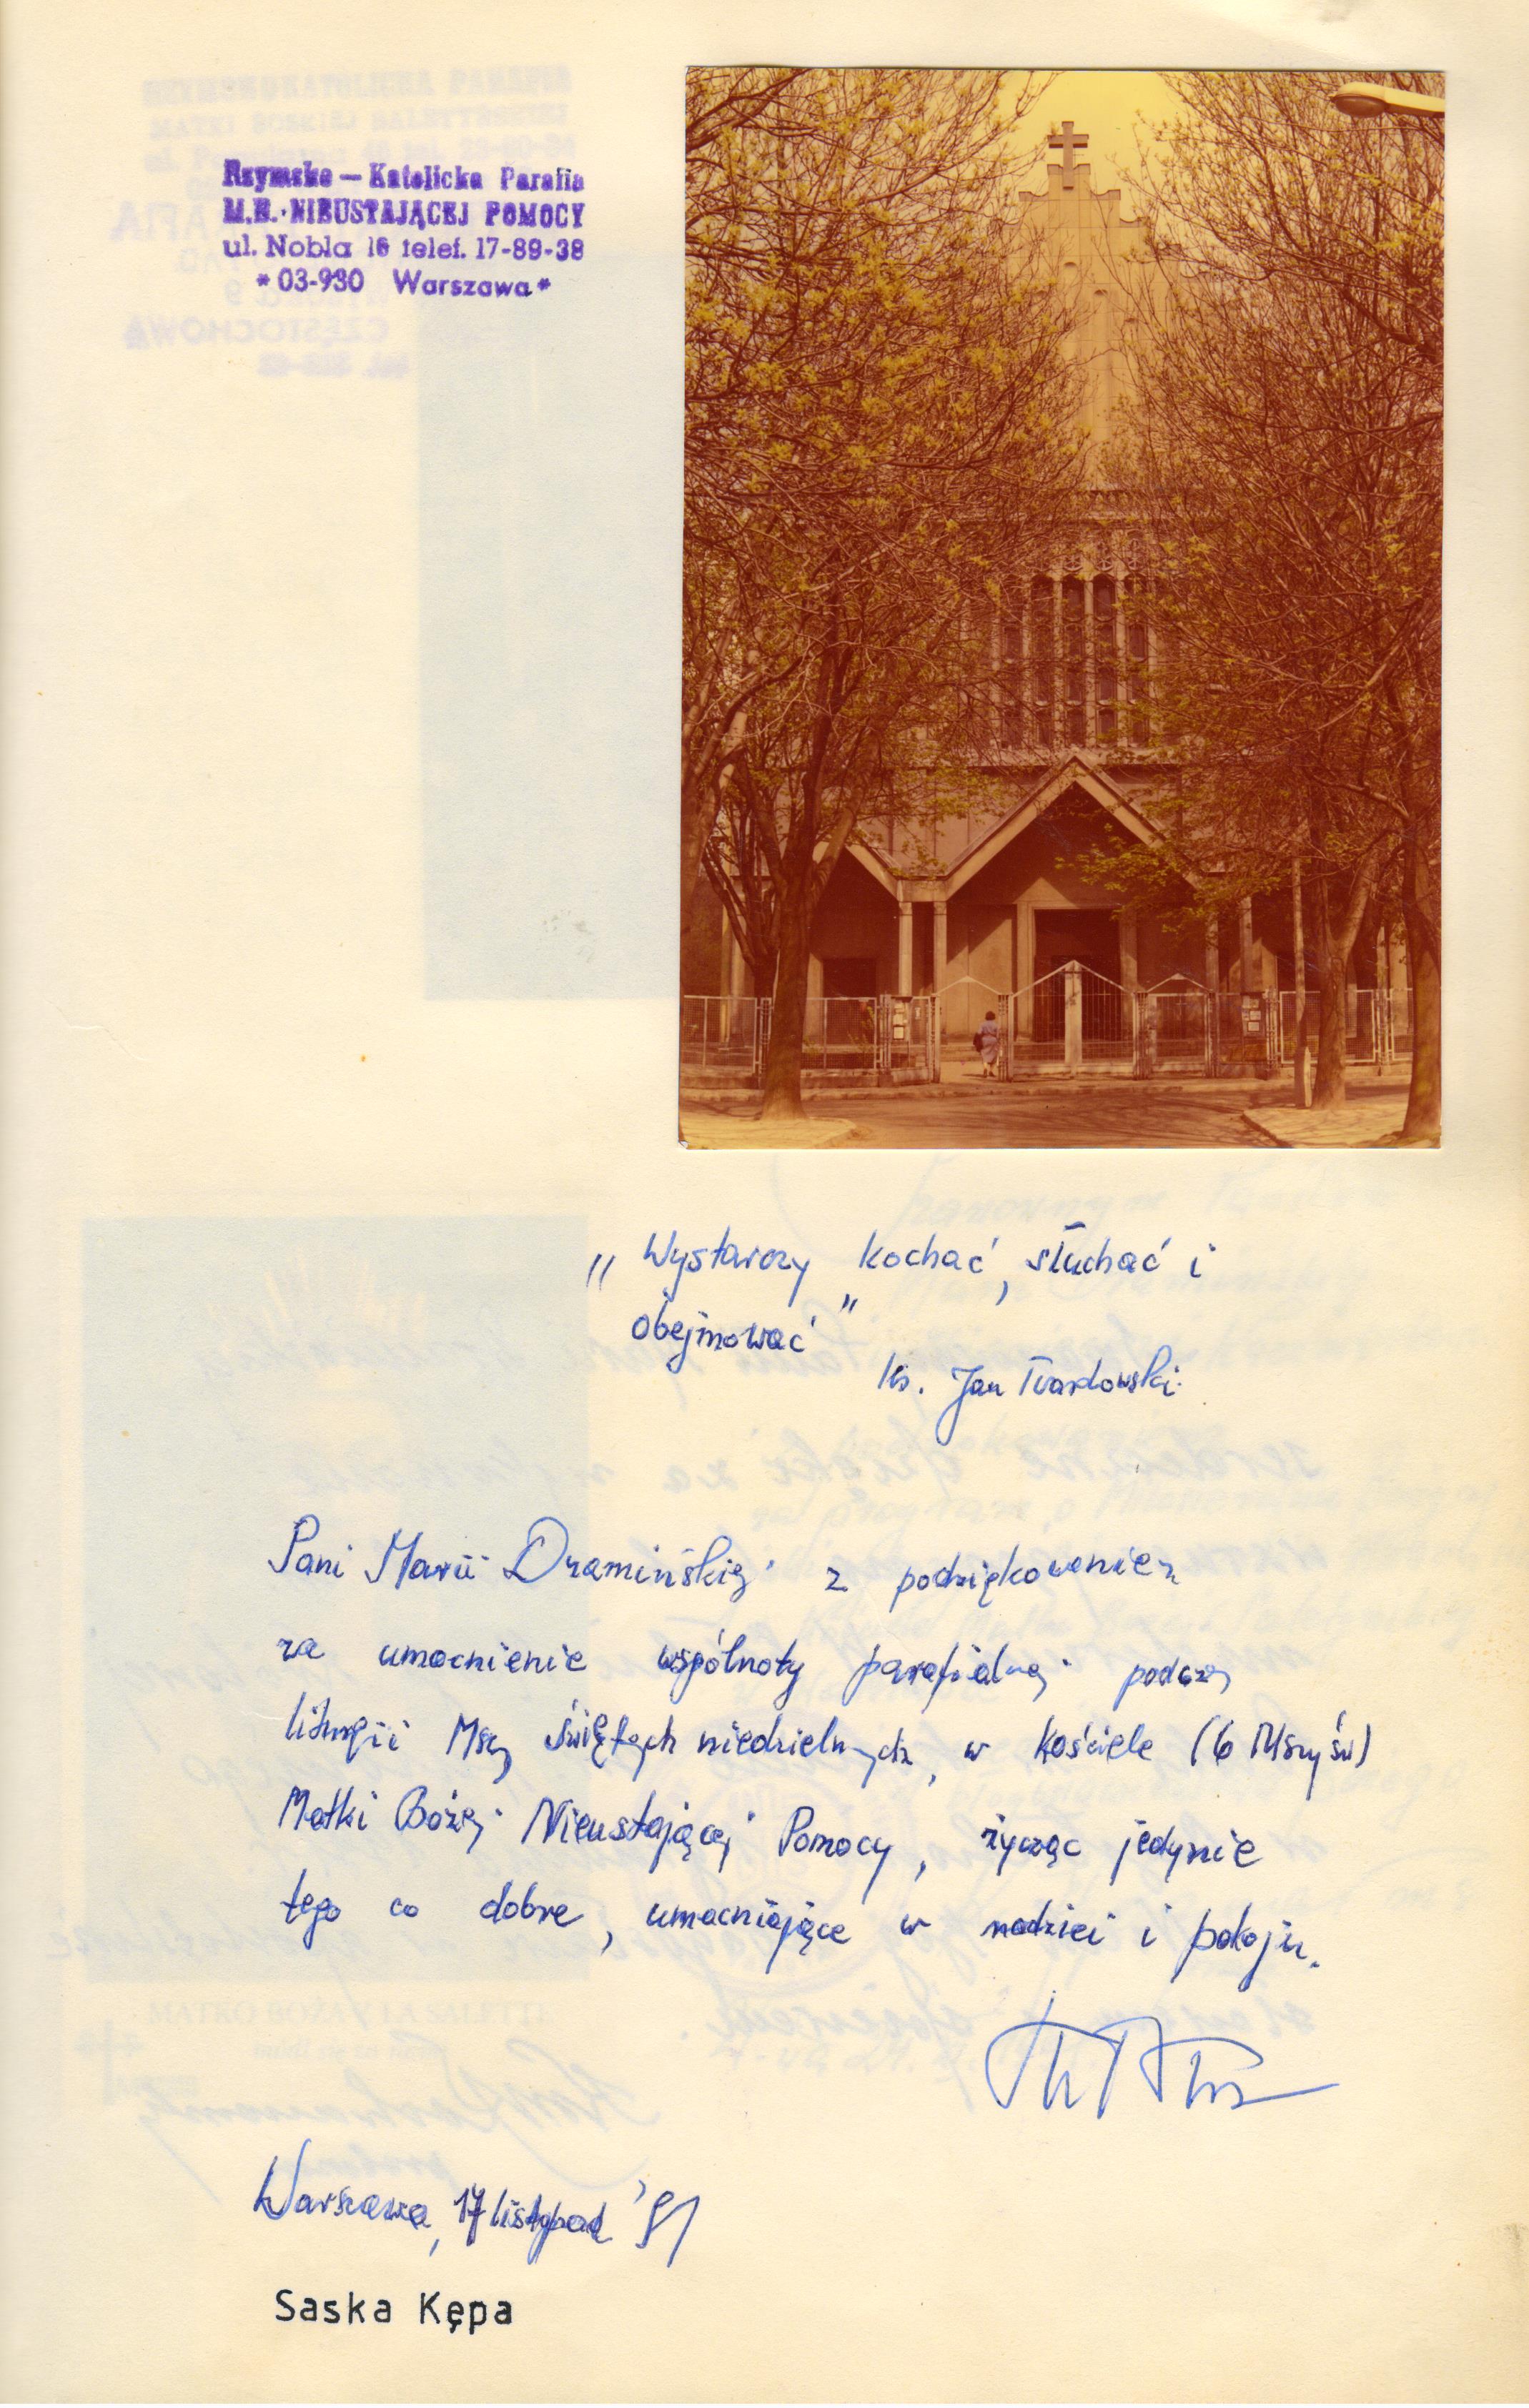 Rzymsko — Katolicka Parafia
M.B. NIEUSTAJĄCEJ POMOCY
ul. Nobla 16 telef. 17-89-38
* 03-930 Warszawa *
„Wystarczy kochać, słuchać i
obejmować”
ks. Jan Twardowski
Pani Marii Dramińskiej z podziękowaniem
za umocnienie wspólnoty parafialnej podczas
liturgii Mszy świętych niedzielnych, w kościele (6 Mszy św)
Matki Bożej Nieustającej Pomocy, życząc jedynie
tego co dobre, umacniające w nadziei i pokoju.
Warszawa, 17 listopad '91
Saska Kępa